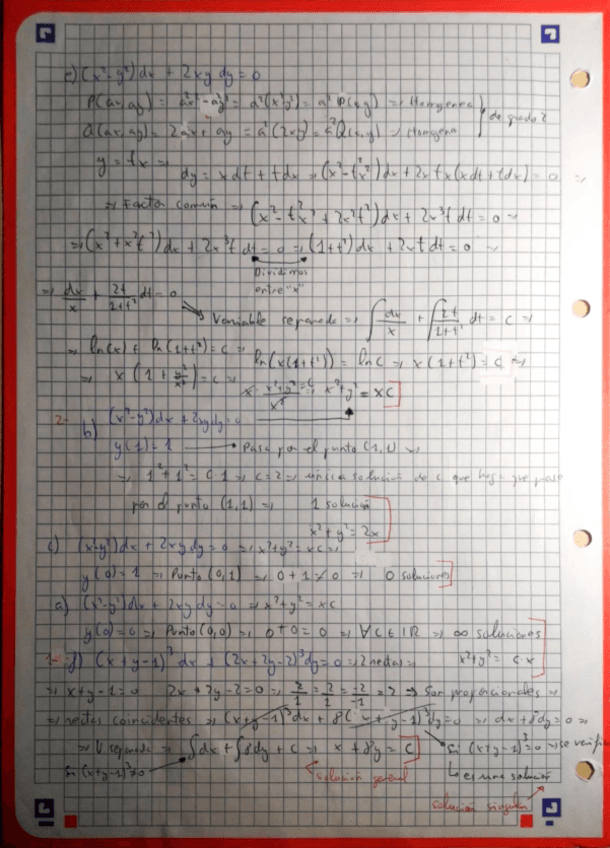 e) (x²-y²)dx + 2xy dy = 0
P(ax,ay) = a²x² - a²y² = a²(x²-y²) = a² P(x,y) ⇒ Homogenea
Q(ax,ay) = 2ax · ay = a²(2xy) = a²Q(x,y) ⇒ Homogena
de grado 2
y = tx ⇒ dy = xdt + tdx ⇒ (x²-t²x²)dx + 2x tx(xdt+tdx) = 0 ⇒
⇒ Factor común ⇒ (x²-t²x²+2x²t²)dx + 2x³t dt = 0 ⇒
⇒ (x²+x²t²)dx + 2x³t dt = 0 ⇒ (1+t²)dx + 2xt dt = 0 ⇒
Dividimos
entre "x"
⇒ dx/x + 2t/1+t² dt = 0
Variable separada ⇒ ∫dx/x + ∫2t/1+t² dt = C ⇒
⇒ ln(x) + ln(1+t²) = C ⇒ ln(x(1+t²)) = ln C ⇒ x(1+t²) = C ⇒
⇒ x(1 + y²/x²) = C ⇒ x · x²+y²/x² = C ⇒ x²+y² = xC
2- b) (x²-y²)dx + 2xydy = 0
y(1) = 1 → Pasa por el punto (1,1) ⇒
⇒ 1²+1² = C·1 ⇒ C = 2 ⇒ única solución de C que haga que pase
por el punto (1,1) ⇒ 1 solución
x²+y² = 2x
c) (x²-y²)dx + 2xydy = 0 ⇒ x²+y² = xC ⇒
y(0) = 1 ⇒ Punto (0,1) ⇒ 0+1 ≠ 0 ⇒ 0 soluciones
a) (x²-y²)dx + 2xydy = 0 ⇒ x²+y² = xC
y(0) = 0 ⇒ Punto (0,0) ⇒ 0+0 = 0 ⇒ ∀C∈IR ⇒ ∞ soluciones
x²+y² = C·x
1- j) (x+y-1)³dx + (2x+2y-2)³dy = 0 ⇒ 2 rectas ⇒
⇒ x+y-1=0 2x+2y-2=0 ⇒ 2/1 = 2/1 = -2/-1 = 2 ⇒ Son proporcionales ⇒
⇒ rectas coincidentes ⇒ (x+y-1)³dx + 8(x+y-1)³dy = 0 ⇒ dx + 8dy = 0 ⇒
⇒ V. separada ⇒ ∫dx + ∫8dy + C ⇒ x + 8y = C
Si (x+y-1)³=0 ⇒ se verifi
Si (x+y-1)³≠0
↳ es una solución
solución general
solución singular